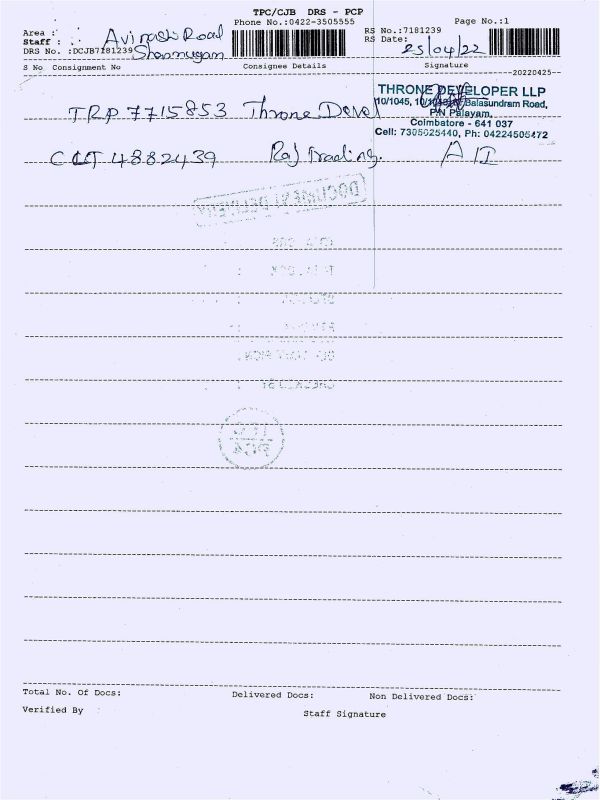 TPC/CJB DRS - PCP
Phone No.:0422-3505555
Page No.:1
Area : Avinashi Road
RS No.:7181239
Staff : Shanmugam
RS Date: 25/04/22
DRS No. :DCJB7181239
S No. Consignment No Consignee Details Signature
20220425
THRONE DEVELOPER LLP
Balasundram Road,
P.N Palayam,
Coimbatore - 641 037
Cell: 7305025440, Ph: 04224505472
TRP 7715853 Throne Devel
CLT 4882439 Raj Trading.
DOCUMENT DELIVERY
Total No. Of Docs: Delivered Docs: Non Delivered Docs:
Verified By Staff Signature